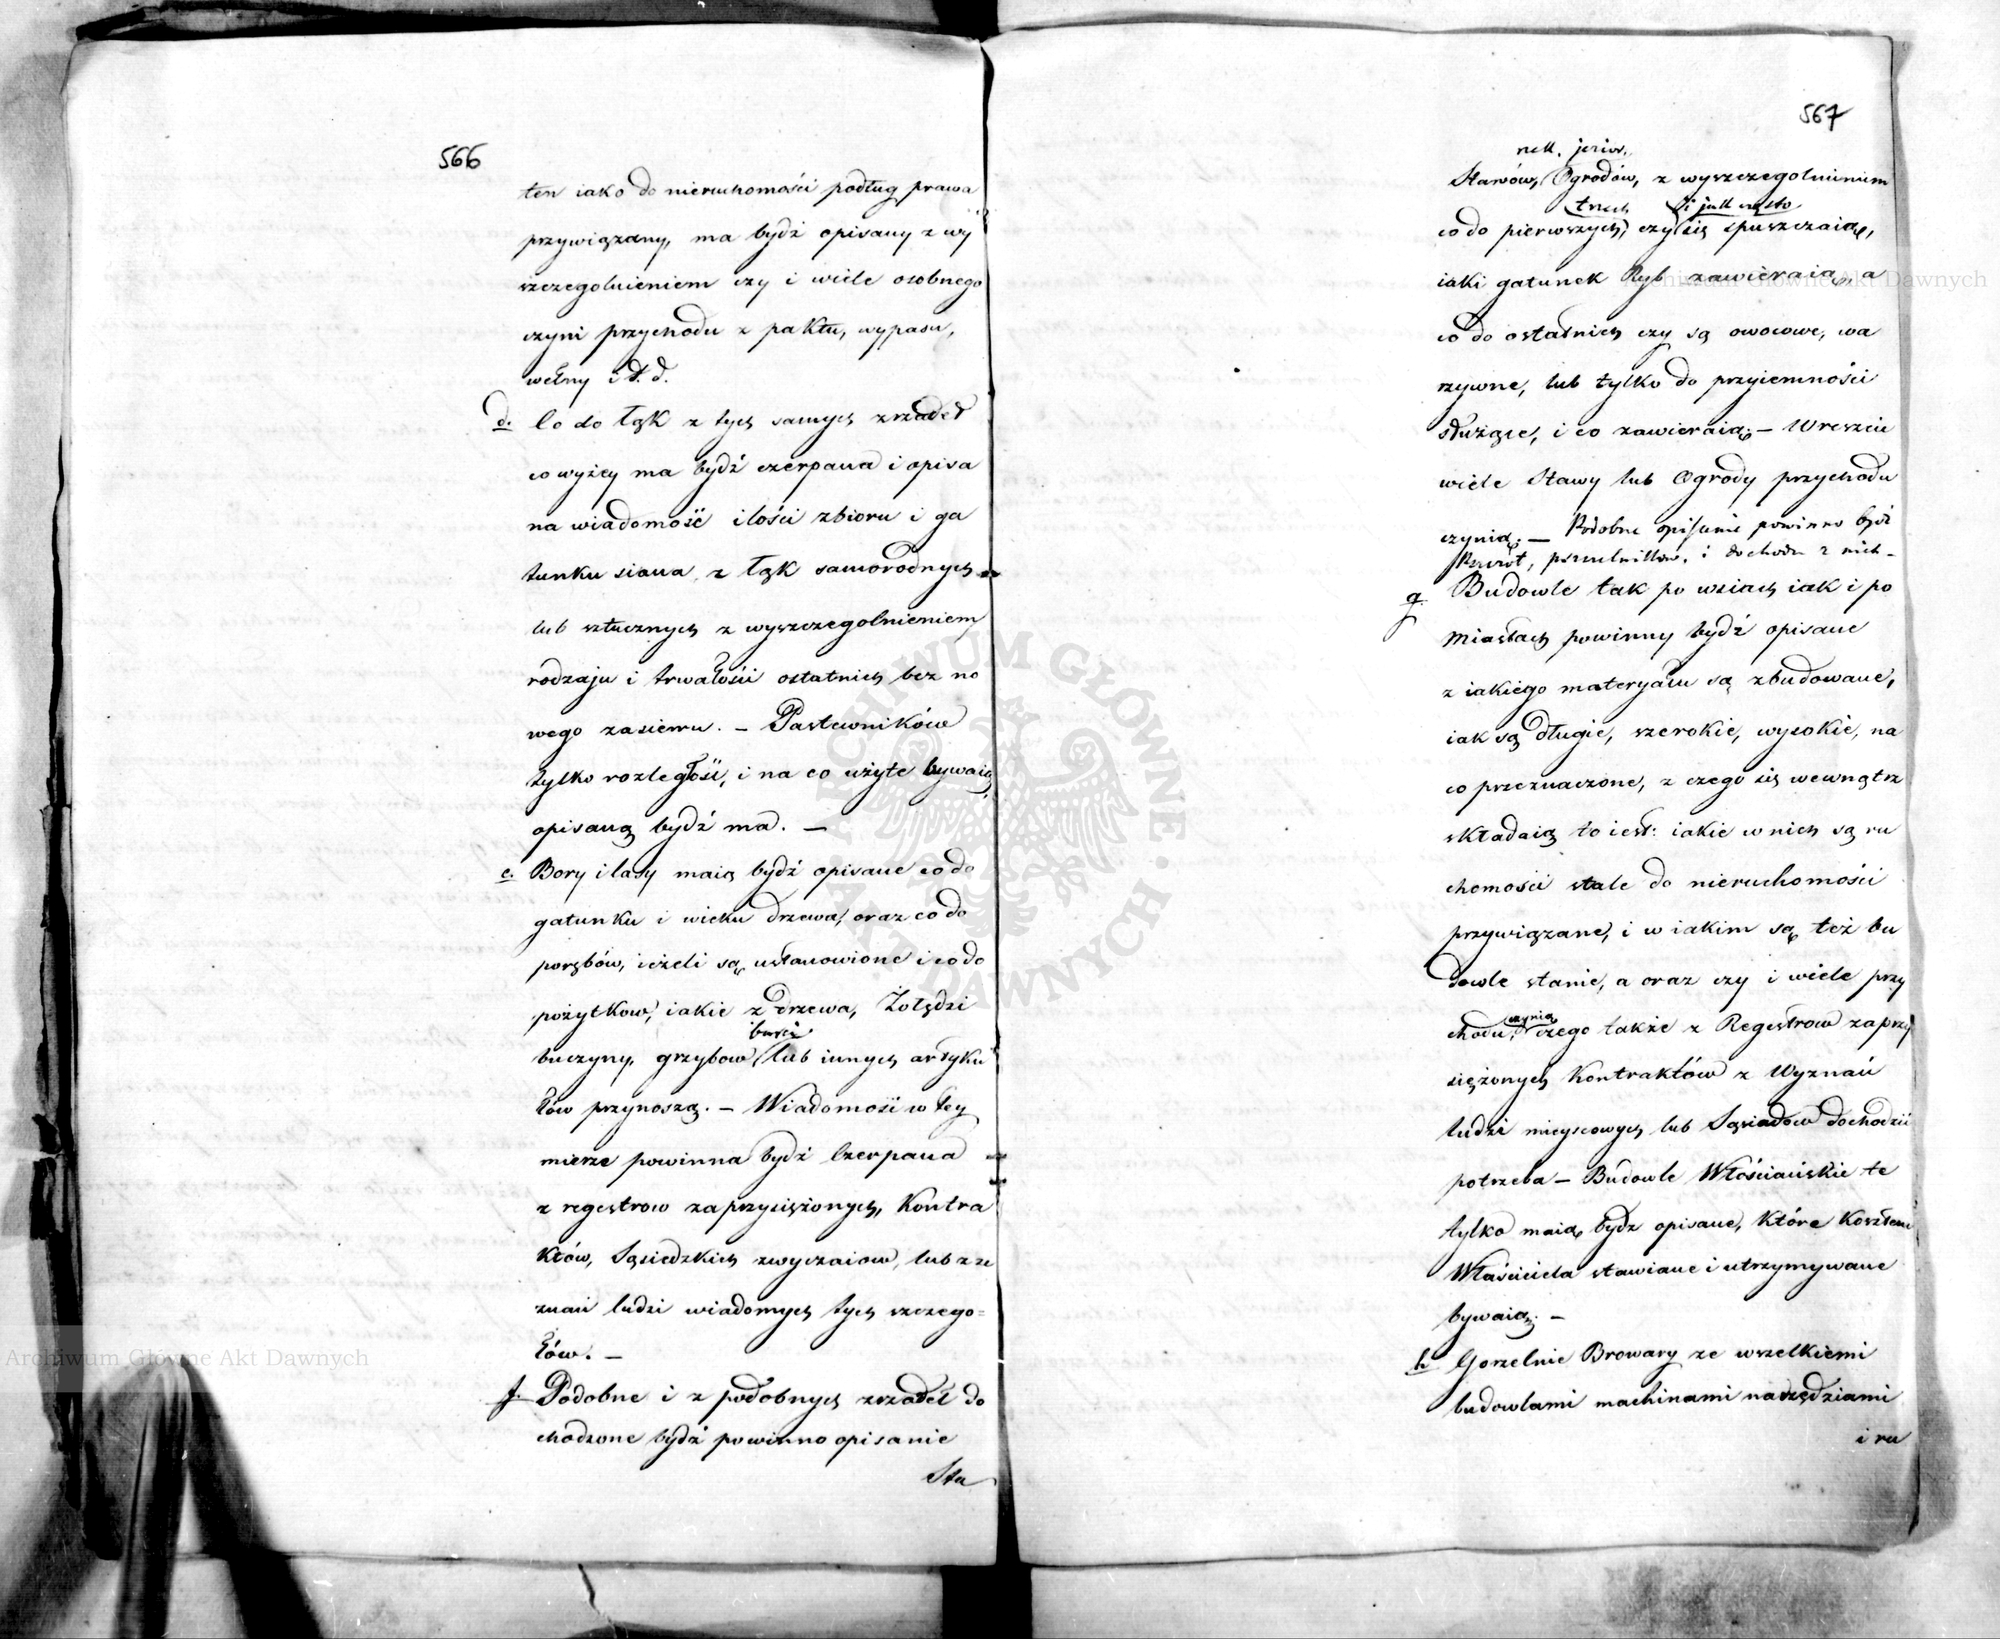 566
ten iako do nieruchomości podług prawa
przywiązany, ma bydź opisany z wy
szczegolnieniem czy i wiele osobnego
czyni przychodu z paktu, wypasu,
wełny i t. d.
d. Co do łąk z tych samych zrzadeł
co wyżey ma bydź czerpana i opisa
na wiadomość ilości zbioru i ga
tunku siana z łąk samorodnych
lub sztucznych z wyszczegolnieniem
rodzaju i trwałości ostatnich bez no
wego zasiewu. – Pastewników
tylko rozległość, i na co użyte bywaią
opisaną bydź ma. –
e. Bory i lasy maią bydź opisane co do
gatunku i wieku drzewa, oraz co do
porębów, ieżeli są ustanowione i co do
pożytkow, iakie z drzewa, Żołędzi
barci
buczyny, grzybow, lub innych artyku
łów przynoszą. – Wiadomość w tey
mierze powinna bydź Czerpana
z regestrow zaprzysiężonych, Kontra
któw, Sąsiedzkich zwyczaiow, lub z ze
znań ludzi wiadomych tych szczego=
łów. –
f. Podobne i z podobnych zrzadeł do
chodzone bydź powinno opisanie
Sta
567
rzek, jezior,
Stawów, Ogrodów, z wyszczegolnieniem
trzech i jak często
co do pierwszych, czy się spuszczaią,
iaki gatunek Ryb zawieraią, a
co do ostatnich czy są owocowe, wa
rzywne, lub tylko do przyiemności
służące, i co zawieraią. – Wreszcie
wiele Stawy lub Ogrody przychodu
czynią. – Podobne opisanie powinno być
pszczół, pszczelników, i dochodu z nich –
g. Budowle tak po wsiach iak i po
Miastach powinny bydź opisane
z iakiego materyału są zbudowane,
iak są długie, szerokie, wysokie, na
co przeznaczone, z czego się wewnątrz
składaią to iest: iakie w nich są ru
chomości stale do nieruchomości
przywiązane, i w iakim są też bu
dowle stanie, a oraz czy i wiele przy
czynią
chodu, czego także z Regestrow zaprzy
siężonych Kontraktów z Wyznań
ludzi mieyscowych lub Sąsiadow dochodzić
potrzeba – Budowle Włościańskie te
tylko maią bydz opisane, które Kosztem
Właściciela stawiane i utrzymywane
bywaią. –
h Gorzelnie Browary ze wszelkiemi
budowlami machinami narzędziami
i ru
Archiwum Główne Akt Dawnych
Archiwum Główne Akt Dawnych
ARCHIWUM GŁÓWNE AKT DAWNYCH